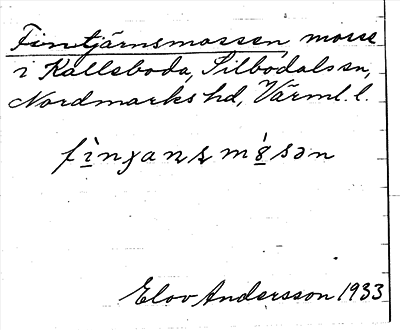 Fintjärnsmossen mosse
i Kallsboda, Silbodals sn,
Nordmarks hd, Värml. l.
Elov Andersson 1933